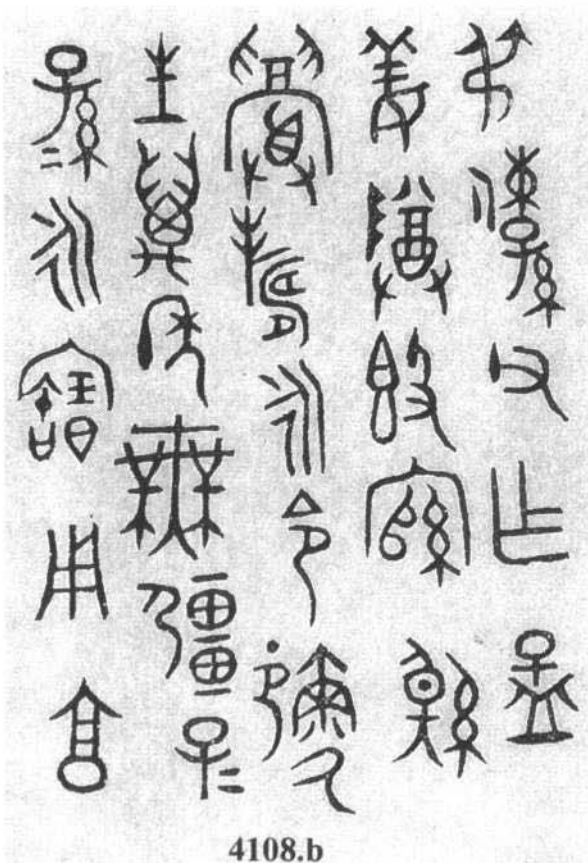 弔孫父乍孟
姜𬯚𣪘綰綽
眉壽永令彌氒
生萬年無彊子=
孫=永寶用亯
4108.b